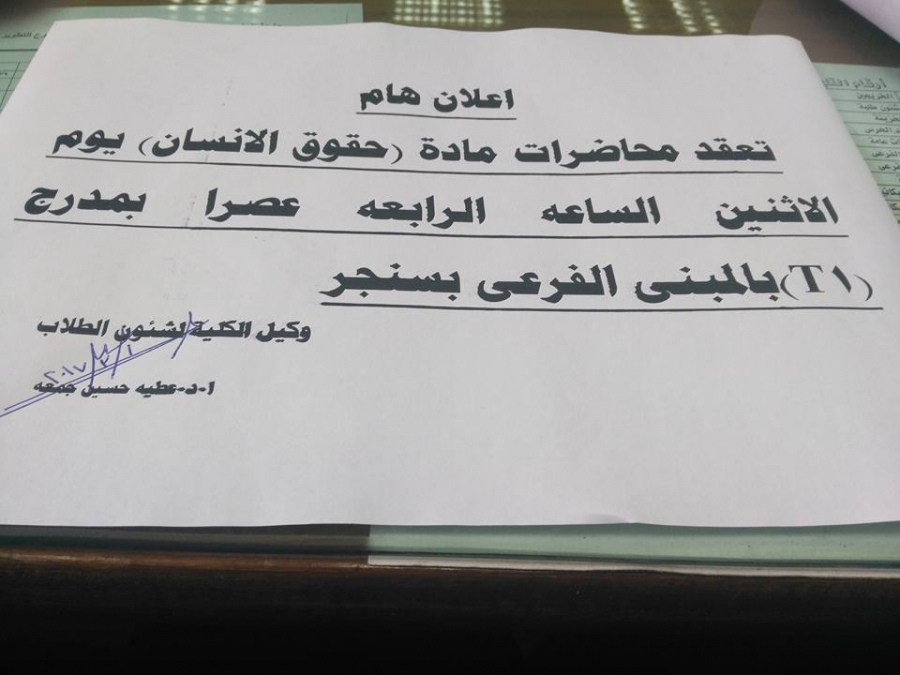 اعلان هام
تعقد محاضرات مادة (حقوق الانسان) يوم
الاثنين الساعه الرابعه عصرا بمدرج
(T١) بالمبنى الفرعى بسنجر
وكيل الكلية لشئون الطلاب
ا-د-عطيه حسين جمعه